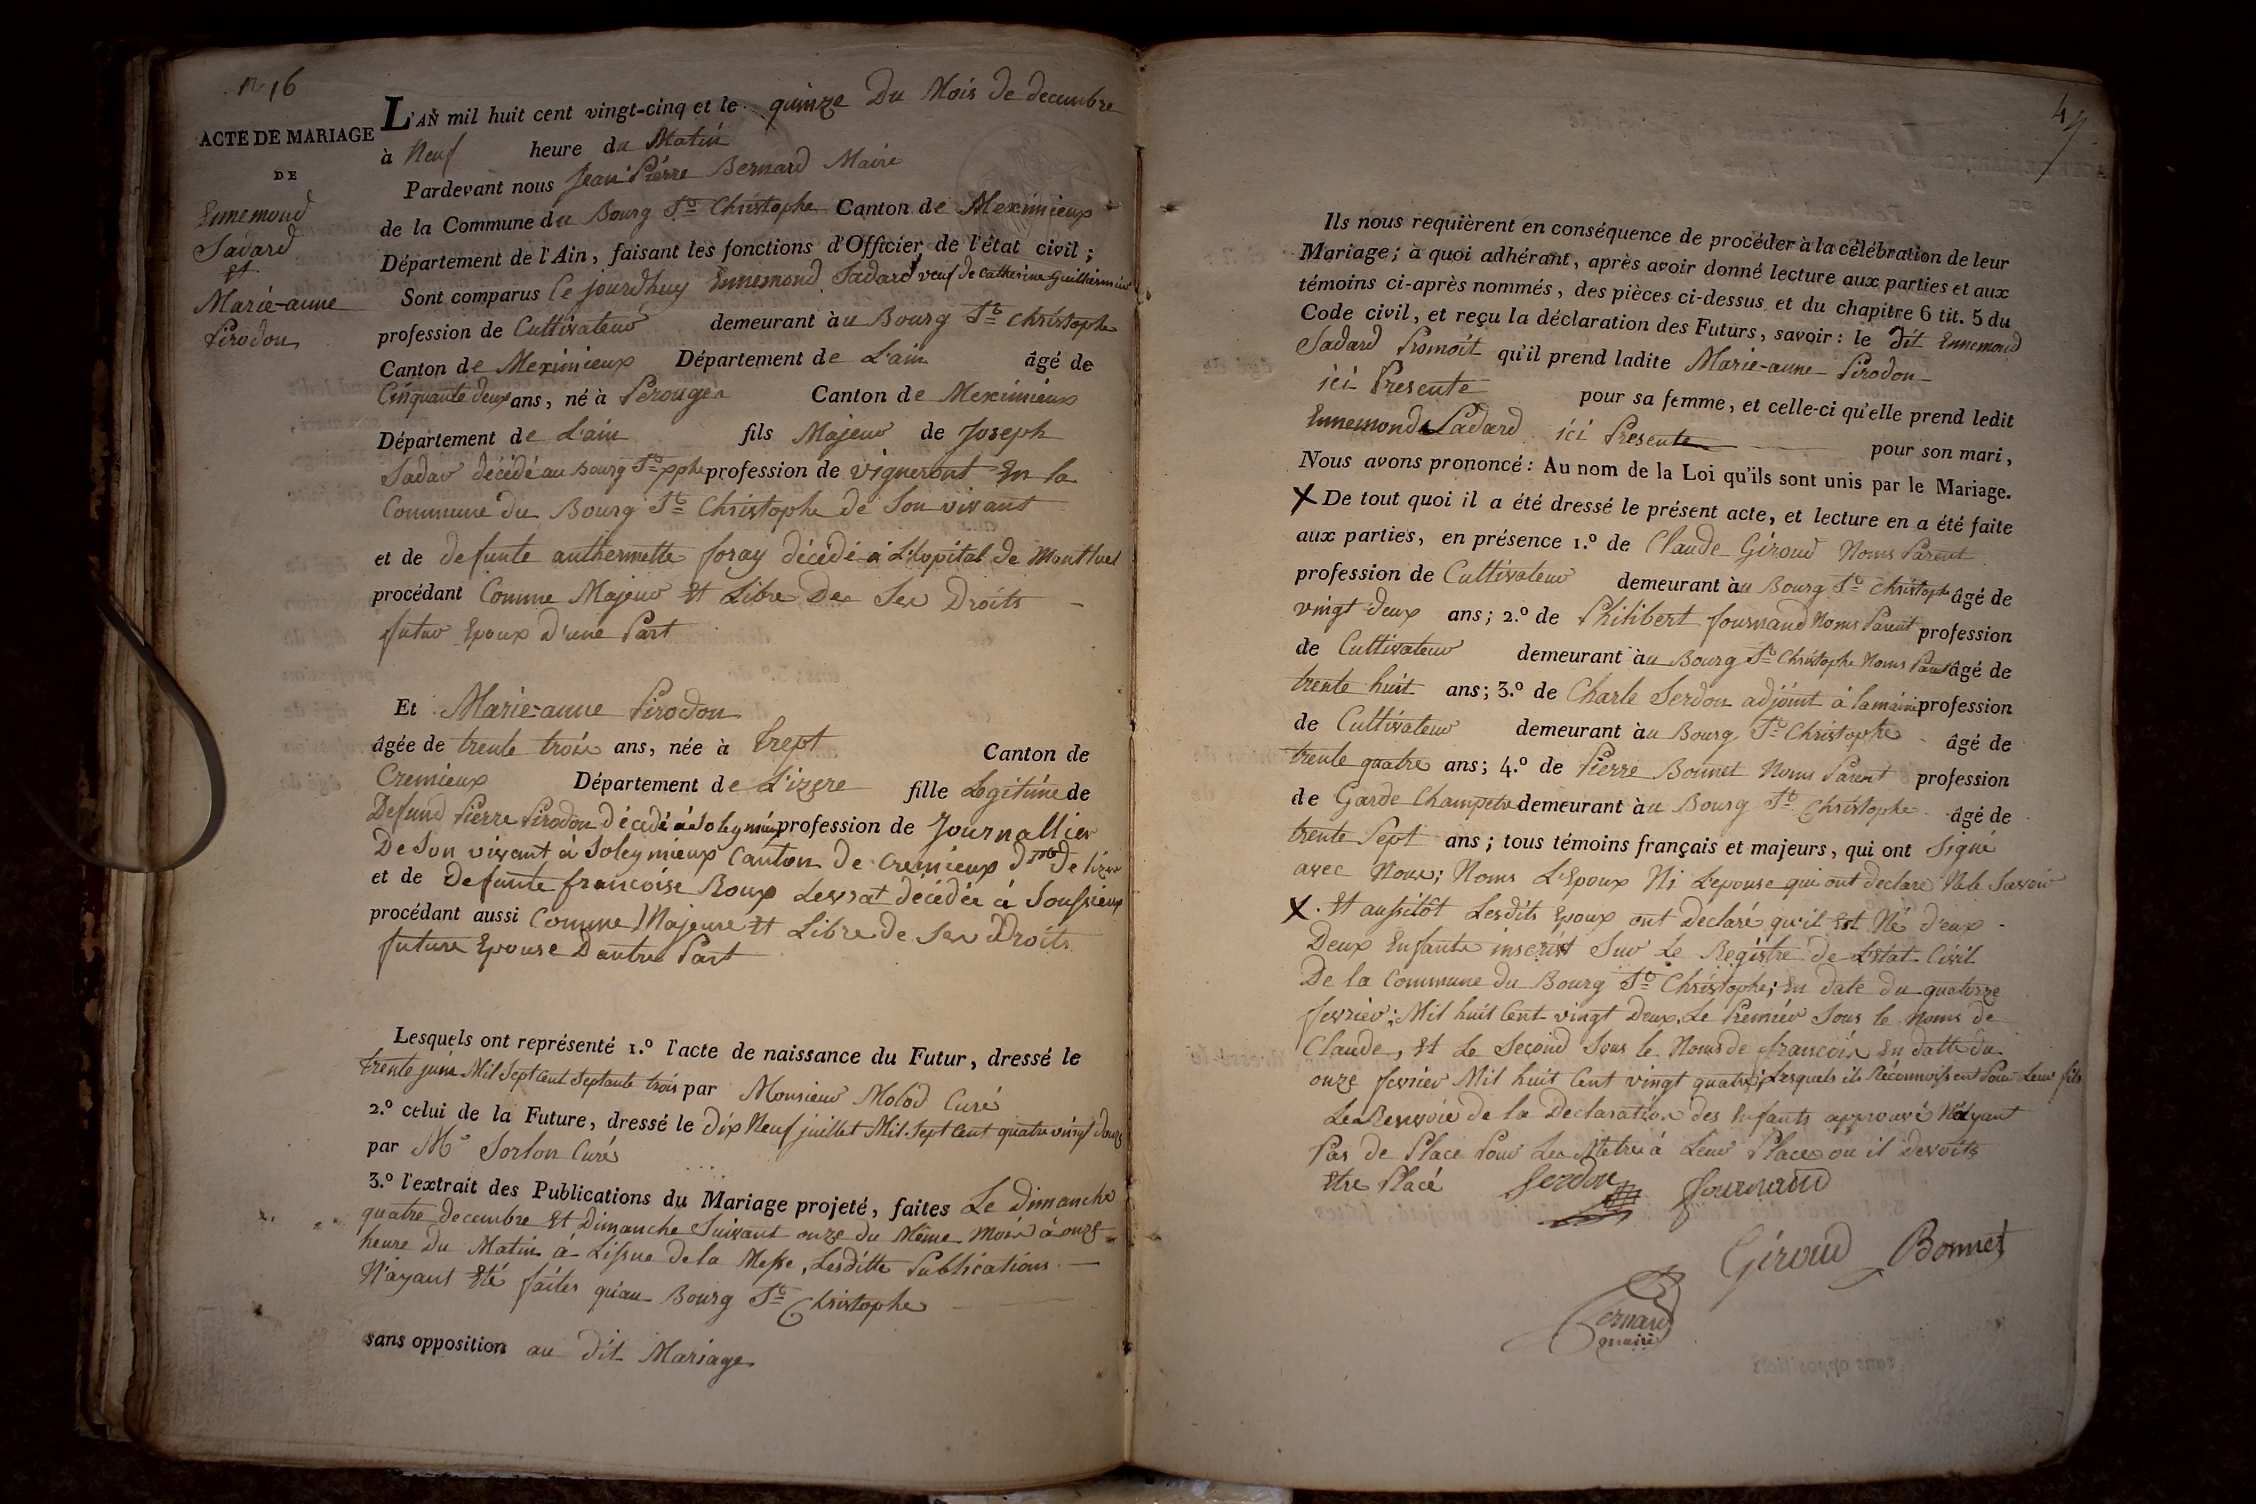 N.o 16
ACTE DE MARIAGE
DE
Ennemond
Sadard
Et
Marie-anne
Pirodon
L'AN mil huit cent vingt-cinq et le quinze Du Mois de decembre
à Neuf heure du Matin
Pardevant nous Jean Pierre Bernard Maire
de la Commune du Bourg St Christophe Canton de Meximieux
Département de l'Ain, faisant les fonctions d'Officier de l'état civil ;
Sont comparus Ce jourdhuy Ennemond Sadard veuf de Catherine Guillermin
profession de Cultivateur demeurant àu Bourg St Christophe
Canton de Meximieux Département de L'ain âgé de
Cinquante deux ans, né à Perouges Canton de Meximieux
Département de L'ain fils Majeur de Joseph
Sadar décédé au Bourg St xphe profession de vigneront En la
Commune du Bourg St Christophe de Son vivant
et de defunte anthermette foray décédé à L'hopital de Montluel
procédant Comme Majeur Et Libre De Ses Droits
futur Epoux d'une Part
Et Marie-anne Pirodon
âgée de trente trois ans, née à Trept Canton de
Cremieux Département de L'izere fille Legitime de
Defund Pierre Pirodon décédé à Soleymieu profession de Journallier
De Son vivant à Soleymieux Canton de Cremieux Dmt De lizere
et de defunte francoise Roux Levrat décédée à Soussieux
procédant aussi Comme Majeure Et Libre de Ses Droits
future Epouse Dautre Part
Lesquels ont représenté 1.o l'acte de naissance du Futur, dressé le
trente juin Mil Sept Cent Septante trois par Monsieur Molod Curé
2.o celui de la Future, dressé le dix Neuf juillet Mil Sept Cent quatre vingt douze
par Mr Sorlon Curé
3.o l'extrait des Publications du Mariage projeté, faites Le Dimanche
quatre decembre Et Dimanche Suivant onze du Même Mois à onze
heure Du Matin à Lissue de la Messe, Lesditte Publications
N'ayant Eté faites qu'au Bourg St Christophe
sans opposition au dit Mariage
Ils nous requièrent en conséquence de procéder à la célébration de leur
Mariage; à quoi adhérant, après avoir donné lecture aux parties et aux
témoins ci-après nommés, des pièces ci-dessus et du chapitre 6 tit. 5 du
Code civil, et reçu la déclaration des Futurs, savoir: le dit Ennemond
Sadard Promoit qu'il prend ladite Marie-anne Pirodon
ici Presente pour sa femme, et celle-ci qu'elle prend ledit
Ennemond Sadard ici Presente pour son mari,
Nous avons prononcé: Au nom de la Loi qu'ils sont unis par le Mariage.
X De tout quoi il a été dressé le présent acte, et lecture en a été faite
aux parties, en présence 1.o de Claude Giroud Noms Parent
profession de Cultivateur demeurant àu Bourg St Christophe âgé de
vingt deux ans; 2.o de Philibert fournand Noms Parent profession
de Cultivateur demeurant àu Bourg St Christophe Noms Parent âgé de
trente huit ans; 3.o de Charle Serdon adjoint à la mairie profession
de Cultivateur demeurant àu Bourg St Christophe âgé de
trente quatre ans; 4.o de Pierre Bonnet Noms Parent profession
de Garde Champetre demeurant àu Bourg St Christophe âgé de
trente Sept ans; tous témoins français et majeurs, qui ont Signé
avec Nous; Noms L'Epoux Ni L'epouse qui ont declare Ne le Savoir
X. Et aussitôt Lesdits Epoux ont Declaré qu'il Est Né d'eux
Deux Enfants inscrist Sur Le Registre De L'etat Civil
De la Commune du Bourg St Christophe; En date du quatorze
fevrier; Mil huit Cent vingt Deux, Le Premier Sous le Noms de
Claude, Et Le Second Sous le Noms de francois En datte du
onze fevrier Mil huit Cent vingt quatre; Lesquels ils Réconnoissent Pour Leur fils
Le Renvoie de la Declaration des Enfants approuvé N'ayant
Pas de Place Pour Les Metre à Leur Place ou il devoits
Etre Placé Serdon fournand
Giroud Bonnet
Bernard
maire